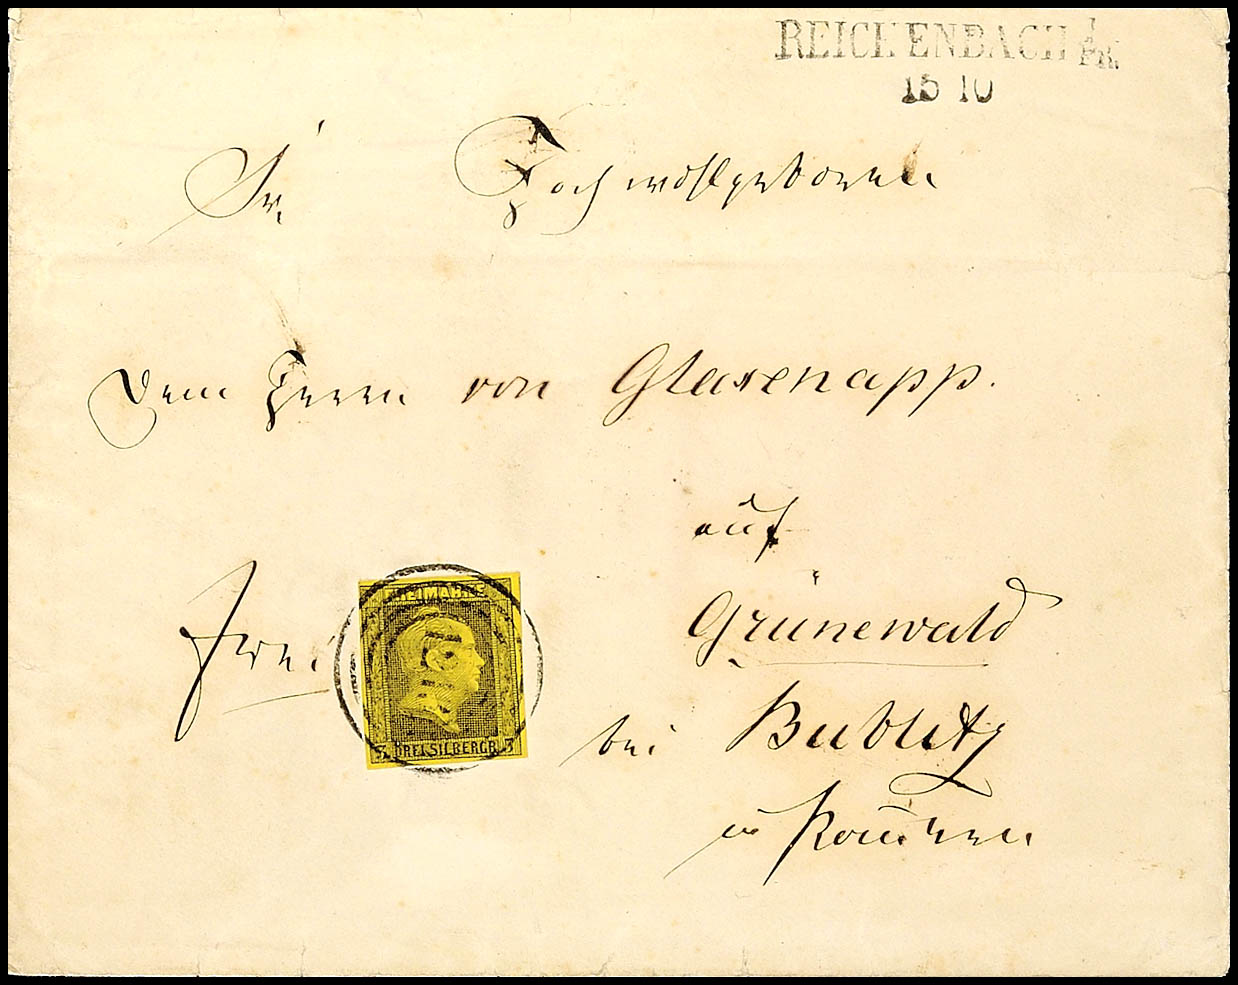 REICHENBACH I/PR.
15 10
Sr. Hochwohlgeboren
Dem Herrn von Glasenapp.
auf
Grünewald
frei
FREIMARKE
3 DREI SILBERGR. 3
bei Bublitz
in Pommern